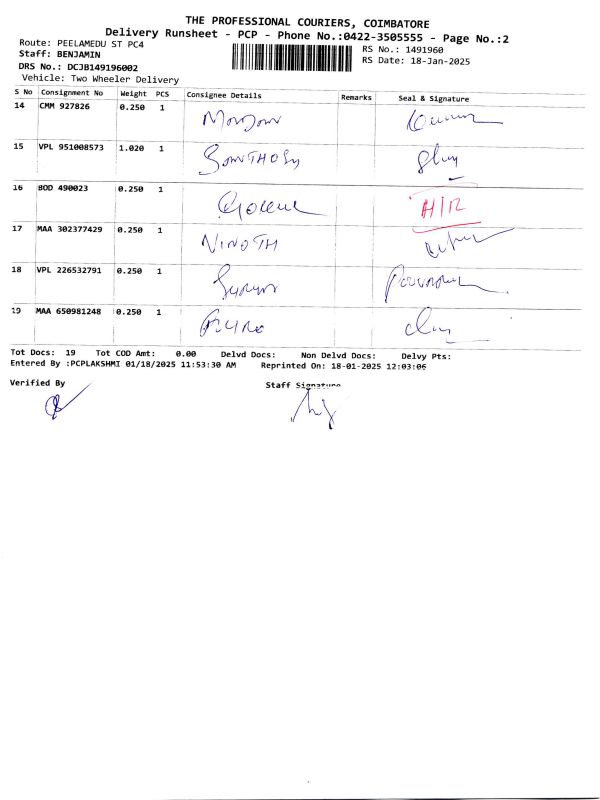 THE PROFESSIONAL COURIERS, COIMBATORE
Delivery Runsheet - PCP - Phone No.:0422-3505555 - Page No.:2
Route: PEELAMEDU ST PC4
Staff: BENJAMIN
DRS No.: DCJB149196002
Vehicle: Two Wheeler Delivery
RS No.: 1491960
RS Date: 18-Jan-2025
S No Consignment No Weight PCS Consignee Details Remarks Seal & Signature
14 CMM 927826 0.250 1
15 VPL 951008573 1.020 1
16 BOD 490023 0.250 1 A/12
17 MAA 302377429 0.250 1 VINOTH
18 VPL 226532791 0.250 1
19 MAA 650981248 0.250 1
Tot Docs: 19 Tot COD Amt: 0.00 Delvd Docs: Non Delvd Docs: Delvy Pts:
Entered By :PCPLAKSHMI 01/18/2025 11:53:30 AM Reprinted On: 18-01-2025 12:03:06
Verified By Staff Signature